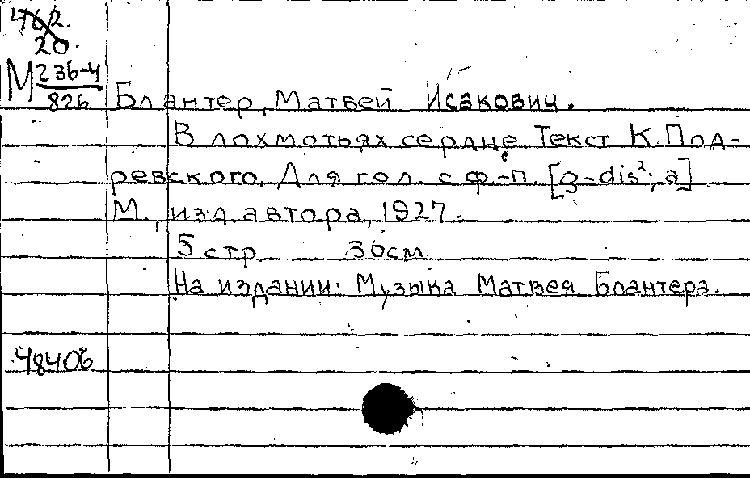 462.
20.
М 236-4
826
Блантер, Матвей Исакович.
В лохмотьях сердце. Текст К. Под-
ревского. Для гол. с ф-п [g-dis², a]
М., изд. автора, 1927.
5 стр 36см
На издании: Музыка Матвея Блантера.
48406